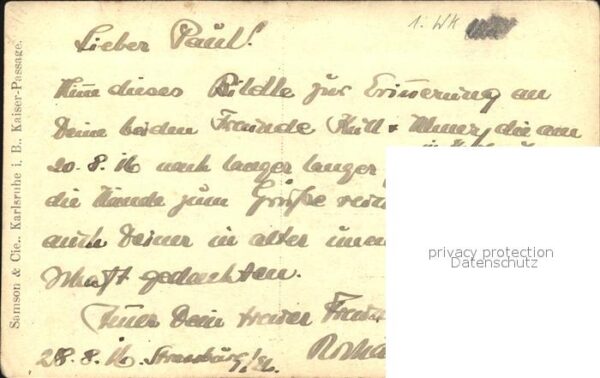 1. WK
Lieber Paul!
Nimm dieses Bildle zur Erinnerung an
Deine beiden Freunde &, die am
20.8.16 nach langer langer
die Hände zum Gruße
auch Deiner in alter
schaft gedachten.
Immer Dein treuer
28.8.16. Strassburg i/E.
Samson & Cie., Karlsruhe i. B., Kaiser-Passage.
privacy protection
Datenschutz